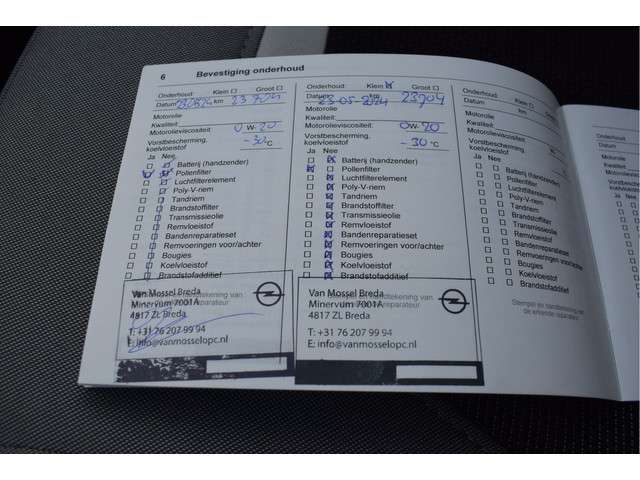 6 Bevestiging onderhoud
Onderhoud: Klein Groot
Datum km
Motorolie
Kwaliteit:
Motorolieviscositeit 0 W- 20
Vorstbescherming,
koelvloeistof -30 °C
Ja Nee
Batterij (handzender)
Pollenfilter
Luchtfilterelement
Poly-V-riem
Tandriem
Brandstoffilter
Transmissieolie
Remvloeistof
Bandenreparatieset
Remvoeringen voor/achter
Bougies
Koelvloeistof
Brandstofadditief
Van Mossel Breda
Minervum 7001A
4817 ZL Breda
T: +31 76 207 99 94
E: info@vanmosselopc.nl
Onderhoud: Klein Groot
Datum 23-05-2024 km 23904
Motorolie
Kwaliteit:
Motorolieviscositeit 0W-20
Vorstbescherming,
koelvloeistof -30 °C
Ja Nee
Batterij (handzender)
Pollenfilter
Luchtfilterelement
Poly-V-riem
Tandriem
Brandstoffilter
Transmissieolie
Remvloeistof
Bandenreparatieset
Remvoeringen voor/achter
Bougies
Koelvloeistof
Brandstofadditief
Van Mossel Breda
Minervum 7001A
4817 ZL Breda
T: +31 76 207 99 94
E: info@vanmosselopc.nl
Onderhoud: Klein Groot
Datum km
Motorolie
Kwaliteit:
Motorolieviscositeit
Vorstbescherming,
koelvloeistof
Ja Nee
Batterij (handzender)
Pollenfilter
Luchtfilterelement
Poly-V-riem
Tandriem
Brandstoffilter
Transmissieolie
Remvloeistof
Bandenreparatieset
Remvoeringen voor/achter
Bougies
Koelvloeistof
Brandstofadditief
Stempel en handtekening van
de erkende reparateur